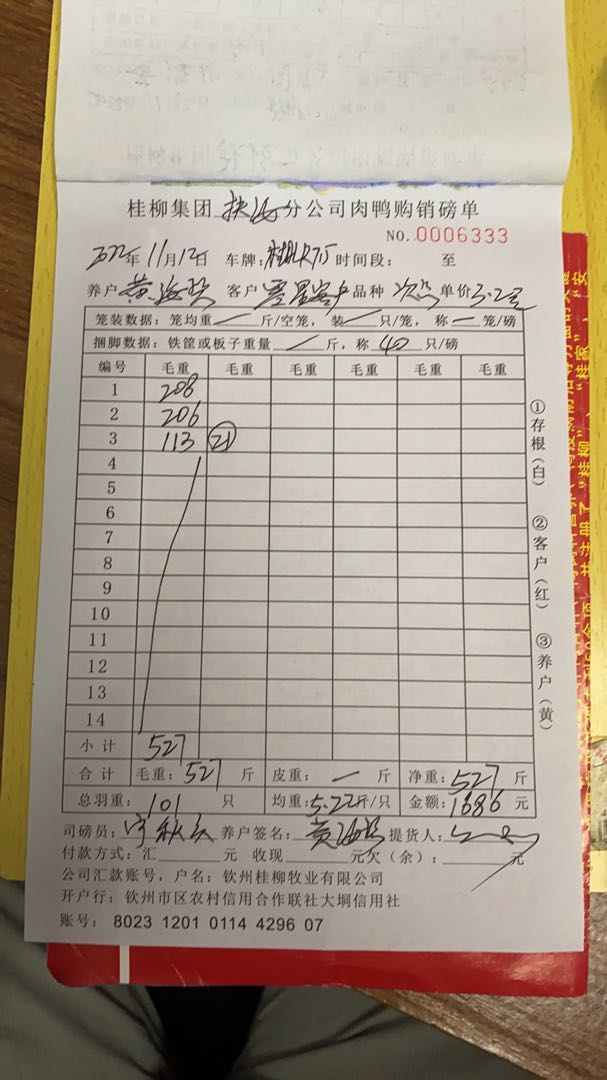 桂柳集团 分公司肉鸭购销磅单
NO.0006333
2022年11月12日 车牌: 时间段: 至
养户 黄海 客户 零星客户 品种 单价 3.2元
笼装数据: 笼均重 一 斤/空笼, 装 一 只/笼, 称 一 笼/磅
捆脚数据: 铁筐或板子重量 一 斤, 称 40 只/磅
编号 毛重 毛重 毛重 毛重 毛重 毛重
1 208
2 206
3 113 21
4
5
6
7
8
9
10
11
12
13
14
小计 527
合计 毛重: 527 斤 皮重: 一 斤 净重: 527 斤
总羽重: 101 只 均重: 5.22斤/只 金额: 1686 元
司磅员: 养户签名: 黄海 提货人:
付款方式: 汇 元 收现 元欠(余): 元
公司汇款账号, 户名: 钦州桂柳牧业有限公司
开户行: 钦州市区农村信用合作联社大垌信用社
账号: 8023 1201 0114 4296 07
①存根(白) ②客户(红) ③养户(黄)